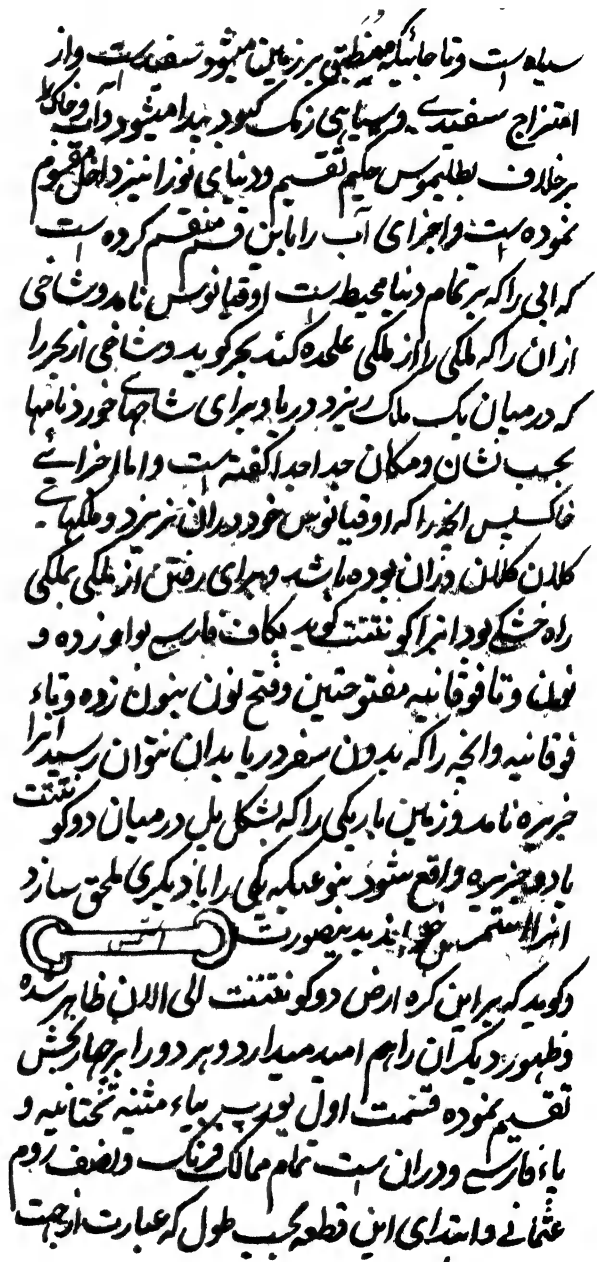 سیاه است و تا جائیکه منطبق بر زمین میشود سفید است و از
امتزاج سفیدی و سیاهی رنگ کبود پیدا میشود و آب و خاک را
برخلاف بطلیموس حکیم تقسیم و دنیای نو را نیز داخل مقسوم
نموده است و اجزای آب را باین قسم منقسم کرده است
که ابی را که بر تمام دنیا محیط است اوقیانوس نامد و شاخی
از ان را که ملکی را از ملکی علحده کند بحر کوید و شاخی از بحر را
که در میان یک ملک ریزد دریا و برای شاخهای خورد نامها
بحسب نشان و مکان جدا جدا کفته است و اما اجزای
خاک پس انچه را که اوقیانوس خود دران نریزد و ملکهای
کلان کلان دران بوده باشد و برای رفتن از ملکی بملکی
راه خشکی بود انرا کونتننت کوید بکاف فارسی بواو زده و
نون و تا فوقانیه مفتوحتین و فتح نون بنون زده و تاء
فوقانیه و انچه را که بدون سفر دریا بدان نتوان رسید انرا
جزیره نامد و زمین باریکی را که بشکل پل در میان دو کونتننت
یا دو جزیره واقع شود بنوعیکه یکی را با دیکری ملحق سازد
انرا استمس خوانند بدینصورت
و کوید که بر این کره ارض دو کونتننت الی الان ظاهر شده
و ظهور دیکران را هم امید میدارد و هر دو را بر چهار بخش
تقسیم نموده قسمت اول یورپ بیاء مثنیه تحتانیه و
باء فارسی و دران است تمام ممالک فرنک و نصف روم
عثمانی و ابتدای این قطعه بحسب طول که عبارت از جهت